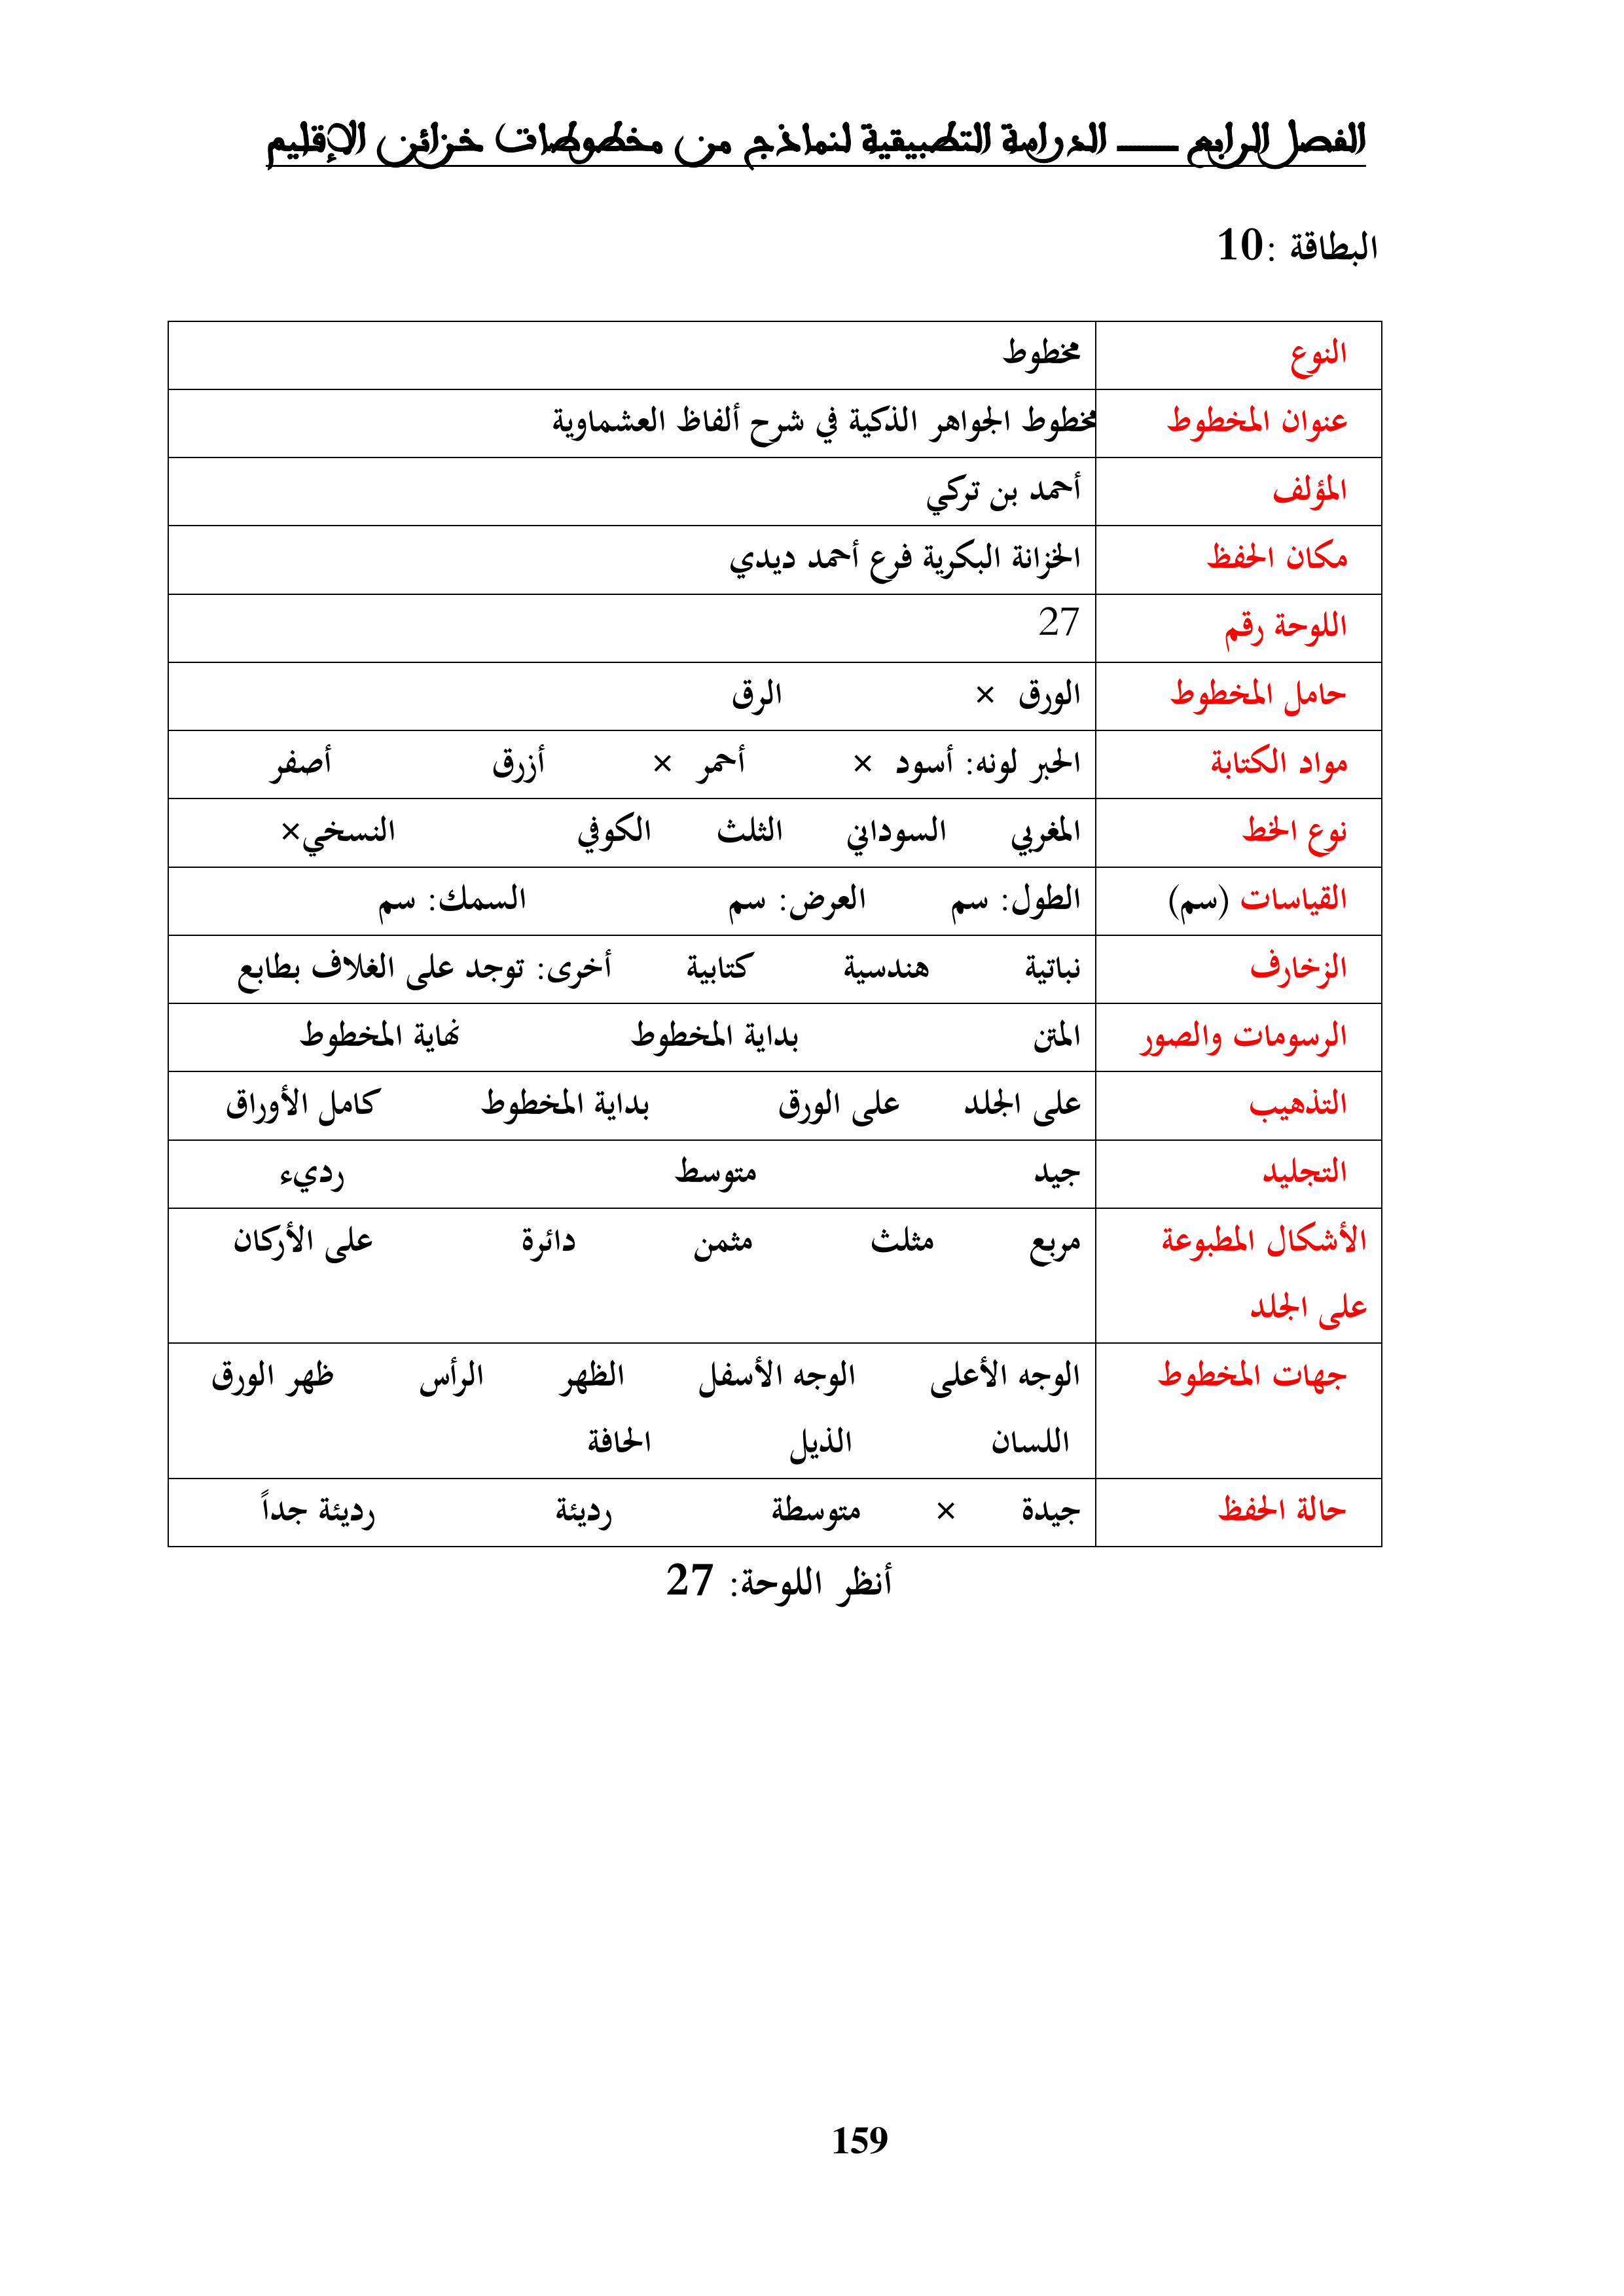 الفصل الرابع ــــــ الدراسة التطبيقية لنماذج من مخطوطات خزائن الإقليم
البطاقة :10
النوع مخطوط
عنوان المخطوط مخطوط الجواهر الذكية في شرح ألفاظ العشماوية
المؤلف أحمد بن تركي
مكان الحفظ الخزانة البكرية فرع أحمد ديدي
اللوحة رقم 27
حامل المخطوط الورق × الرق
مواد الكتابة الحبر لونه: أسود × أحمر × أزرق أصفر
نوع الخط المغربي السوداني الثلث الكوفي النسخي×
القياسات (سم) الطول: سم العرض: سم السمك: سم
الزخارف نباتية هندسية كتابية أخرى: توجد على الغلاف بطابع
الرسومات والصور المتن بداية المخطوط نهاية المخطوط
التذهيب على الجلد على الورق بداية المخطوط كامل الأوراق
التجليد جيد متوسط رديء
الأشكال المطبوعة مربع مثلث مثمن دائرة على الأركان
على الجلد
جهات المخطوط الوجه الأعلى الوجه الأسفل الظهر الرأس ظهر الورق
اللسان الذيل الحافة
حالة الحفظ جيدة × متوسطة رديئة رديئة جداً
أنظر اللوحة: 27
159